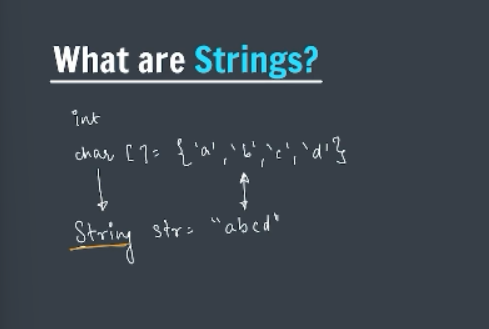 What are Strings?
int
char []= {'a','b','c','d'}
String str= "abcd"